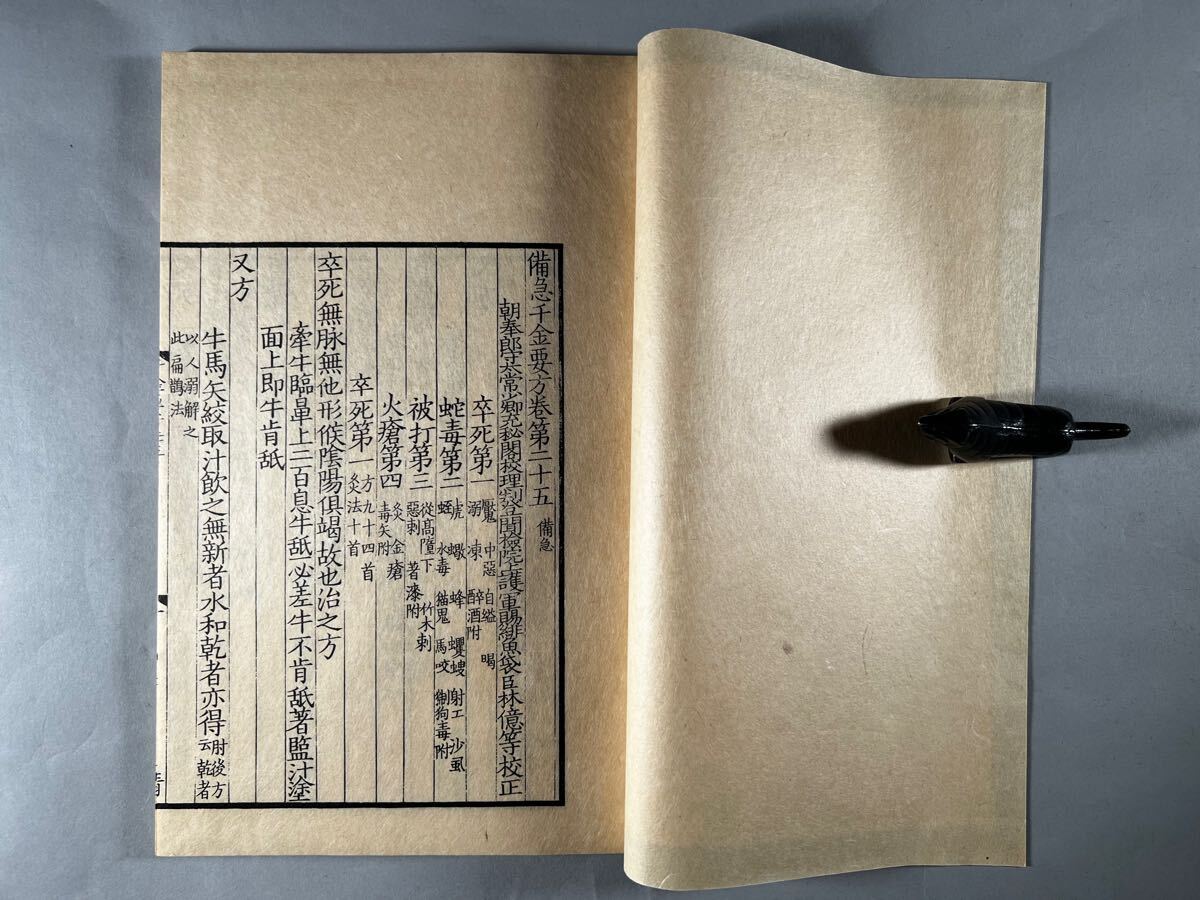 備急千金要方卷第二十五 備急
朝奉郎守太常少卿充秘閣校理判登聞檢院上護軍賜緋魚袋臣林億等校正
卒死第一 魘 中惡 自縊 暍
溺 凍 醉酒附
蛇毒第二 虎 蠍 蜂 蠼螋 射工 沙虱
蛭 水毒 猫鬼 馬咬 猘狗毒附
被打第三 從高墮下 竹木刺
惡刺 著漆附
火瘡第四 灸 金瘡
毒矢附
卒死第一 方九十四首
灸法十首
卒死無脉無他形候陰陽俱竭故也治之方
牽牛臨鼻上二百息牛舐必差牛不肯舐著鹽汁塗
面上即牛肯舐
又方
牛馬矢絞取汁飲之無新者水和乾者亦得 肘後方
云乾者
以人溺解之
此扁鵲法